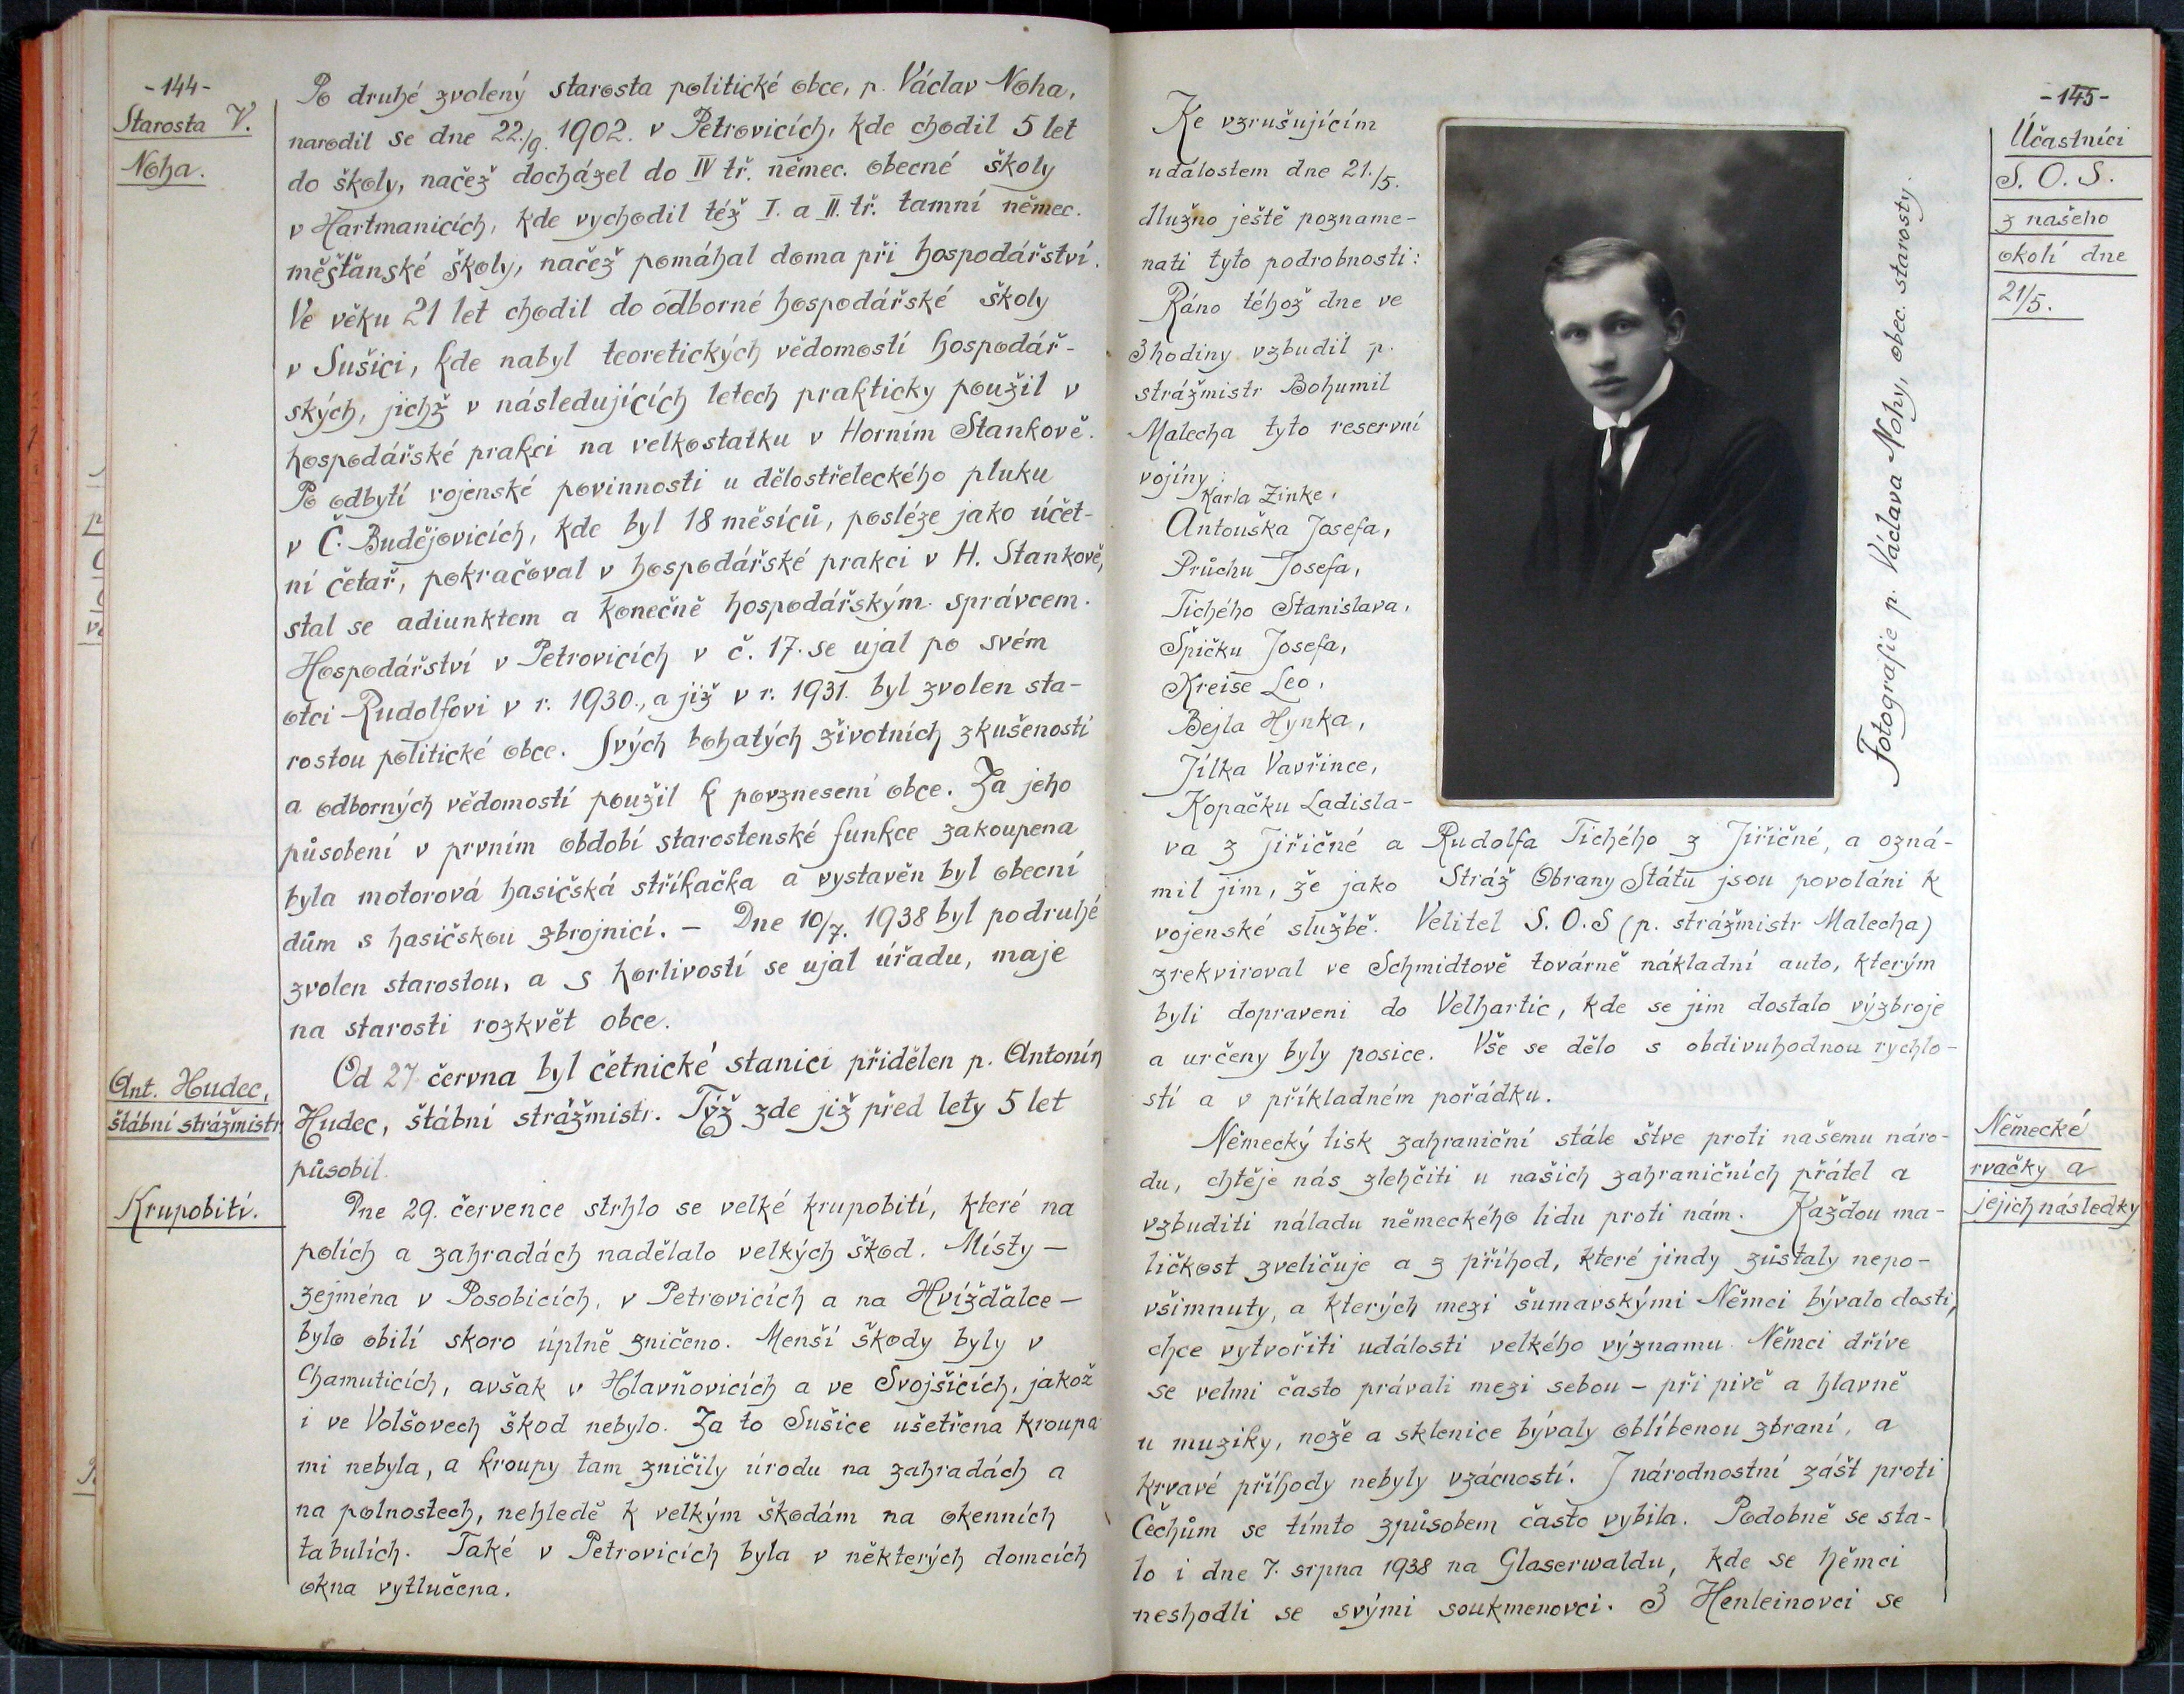 -144-
Starosta V.
Noha.
Po druhé zvolený starosta politické obce, p. Václav Noha,
narodil se dne 22./9. 1902. v Petrovicích, kde chodil 5 let
do školy, načež docházel do IV tř. němec. obecné školy
v Hartmanicích, kde vychodil též I. a II. tř. tamní němec.
měšťanské školy, načež pomáhal doma při hospodářství.
Ve věku 21 let chodil do odborné hospodářské školy
v Sušici, kde nabyl teoretických vědomostí hospodář-
ských, jichž v následujících letech prakticky použil v
hospodářské prakci na velkostatku v Horním Stankově.
Po odbytí vojenské povinnosti u dělostřeleckého pluku
v Č. Budějovicích, kde byl 18 měsíců, posléze jako účet-
ní četař, pokračoval v hospodářské prakci v H. Stankově,
stal se adiunktem a konečně hospodářským správcem.
Hospodářství v Petrovicích v č. 17. se ujal po svém
otci Rudolfovi v r. 1930., a již v r. 1931. byl zvolen sta-
rostou politické obce. Svých bohatých životních zkušeností
a odborných vědomostí použil k povznesení obce. Za jeho
působení v prvním období starostenské funkce zakoupena
byla motorová hasičská stříkačka a vystavěn byl obecní
dům s hasičskou zbrojnicí. — Dne 10/7. 1938 byl podruhé
zvolen starostou, a s horlivostí se ujal úřadu, maje
na starosti rozkvět obce.
Ant. Hudec,
štábní strážmistr
Od 27. června byl četnické stanici přidělen p. Antonín
Hudec, štábní strážmistr. Týž zde již před lety 5 let
působil.
Krupobití.
Dne 29. července strhlo se velké krupobití, které na
polích a zahradách nadělalo velkých škod. Místy —
zejména v Posobicích, v Petrovicích a na Hvížďalce —
bylo obilí skoro úplně zničeno. Menší škody byly v
Chamuticích, avšak v Hlavňovicích a ve Svojšicích, jakož
i ve Volšovech škod nebylo. Za to Sušice ušetřena kroupa
mi nebyla, a kroupy tam zničily úrodu na zahradách a
na polnostech, nehledě k velkým škodám na okenních
tabulích. Také v Petrovicích byla v některých domcích
okna vytlučena.
-145-
Účastníci
S. O. S.
z našeho
okolí dne
21/5.
Ke vzrušujícím
událostem dne 21./5.
dlužno ještě pozname-
nati tyto podrobnosti:
Ráno téhož dne ve
3 hodiny vzbudil p.
strážmistr Bohumil
Malecha tyto reservní
vojíny:
Karla Zinke,
Antouška Josefa,
Průchu Josefa,
Tichého Stanislava,
Špičku Josefa,
Kreise Leo,
Bejla Hynka,
Jílka Vavřince,
Kopačku Ladisla-
va z Jiřičné a Rudolfa Tichého z Jiřičné, a ozná-
mil jim, že jako Stráž Obrany Státu jsou povoláni k
vojenské službě. Velitel S. O. S (p. strážmistr Malecha)
zrekviroval ve Schmidtově továrně nákladní auto, kterým
byli dopraveni do Velhartic, kde se jim dostalo výzbroje
a určeny byly posice. Vše se dělo s obdivuhodnou rychlo-
stí a v příkladném pořádku.
Fotografie p. Václava Nohy, obec. starosty.
Německé
rvačky a
jejich následky
Německý tisk zahraniční stále štve proti našemu náro-
du, chtěje nás zlehčiti u našich zahraničních přátel a
vzbuditi náladu německého lidu proti nám. Každou ma-
ličkost zveličuje a z příhod, které jindy zůstaly nepo-
všimnuty, a kterých mezi šumavskými Němci bývalo dosti,
chce vytvořiti události velkého významu. Němci dříve
se velmi často právali mezi sebou – při pivě a hlavně
u muziky, nože a sklenice bývaly oblíbenou zbraní, a
krvavé příhody nebyly vzácností. I národnostní zášť proti
Čechům se tímto způsobem často vybila. Podobně se sta-
lo i dne 7. srpna 1938 na Glaserwaldu, kde se Němci
neshodli se svými soukmenovci. 3 Henleinovci se